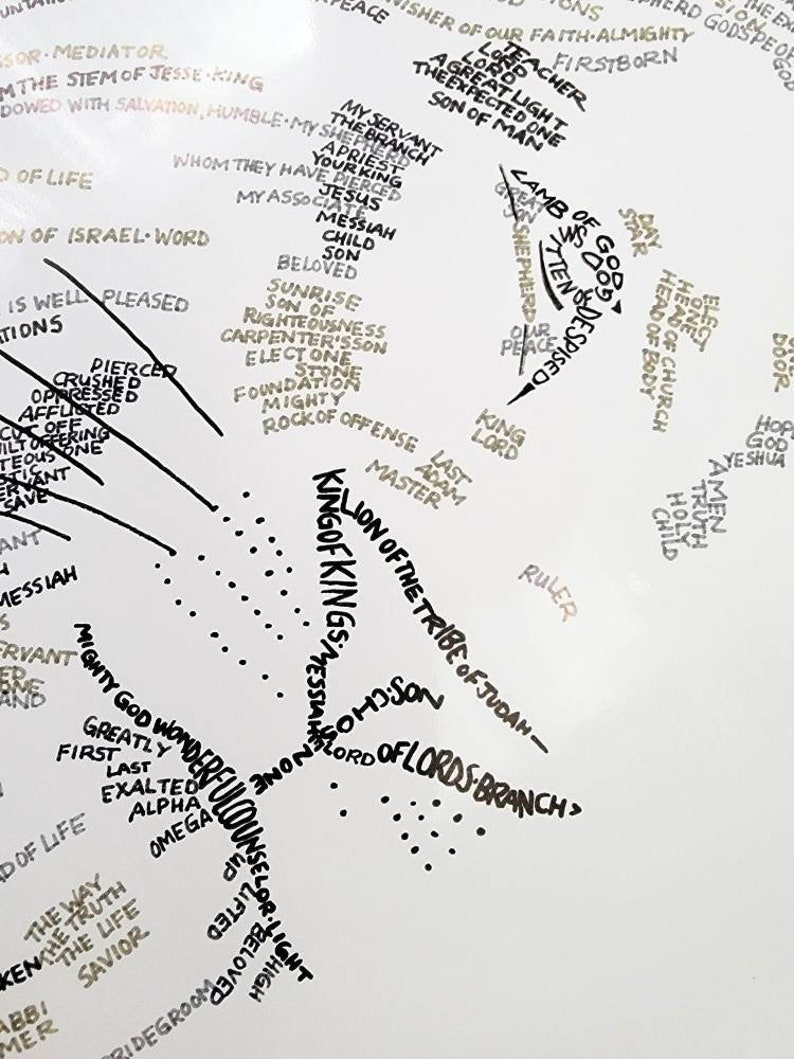 PEACE
NISHER OF OUR FAITH·ALMIGHTY
SOR·MEDIATOR
M THE STEM OF JESSE·KING
DOWED WITH SALVATION, HUMBLE·MY SHEPHERD
TEACHER
LORD
LORD
A GREAT LIGHT
THE EXPECTED ONE
SON OF MAN
FIRSTBORN
MY SERVANT
THE BRANCH
A PRIEST
YOUR KING
WHOM THEY HAVE PIERCED
JESUS
MY ASSOCIATE
MESSIAH
CHILD
SON
BELOVED
D OF LIFE
ON OF ISRAEL·WORD
IS WELL PLEASED
ATIONS
SUNRISE
SON OF
RIGHTEOUSNESS
CARPENTER'S SON
ELECT ONE
STONE
FOUNDATION
MIGHTY
ROCK OF OFFENSE
LAST
ADAM
MASTER
KING
LORD
LAMB OF GOD
GREAT
SHEPHERD
OUR
PEACE
DESPISED
DAY
STAR
ELECT
ONE
HEAD OF CHURCH
HEAD OF BODY
DOOR
HOP
GOD
YESHUA
AMEN
TRUTH
HOLY
CHILD
RULER
PIERCED
CRUSHED
OPPRESSED
AFFLICTED
CUT OFF
GUILT OFFERING
TEOUS ONE
ERVANT
SAVE
ANT
MESSIAH
ERVANT
KING OF KINGS·MESSIAH
LION OF THE TRIBE OF JUDAH
HOLY ONE
SON
LORD OF LORDS·BRANCH
MIGHTY GOD WONDERFUL COUNSELOR·LIGHT
GREATLY
FIRST
LAST
EXALTED
ALPHA
OMEGA
UP
LIFTED
BELOVED
HIGH
AD OF LIFE
THE WAY
THE TRUTH
THE LIFE
SAVIOR
KEN
ABBI
MER
BRIDEGROOM